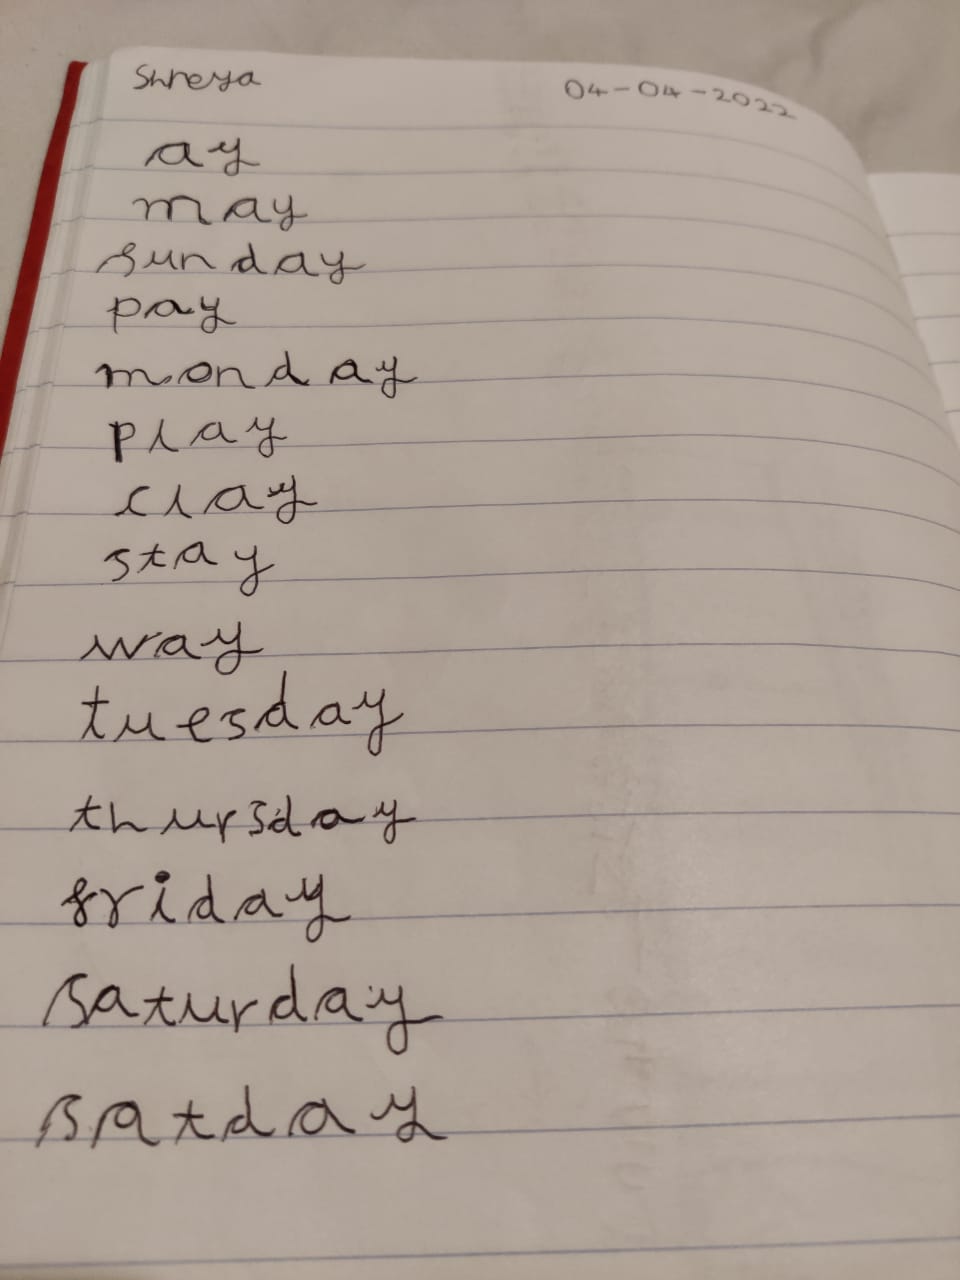 Shreya 04-04-2022
ay
may
sunday
pay
monday
play
clay
stay
way
tuesday
thursday
friday
saturday
satday